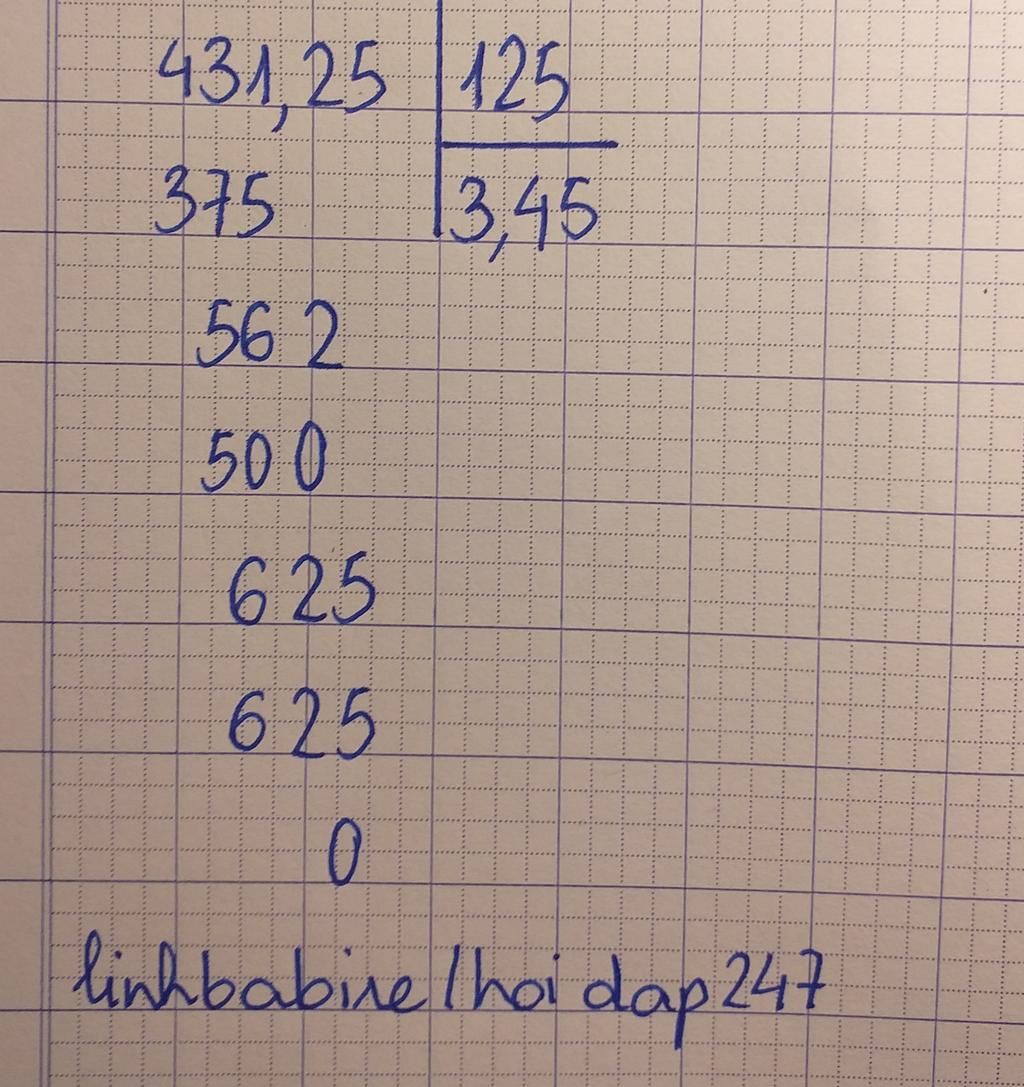 431,25 125
375 3,45
56 2
50 0
6 25
6 25
0
linhbabire/hoidap247